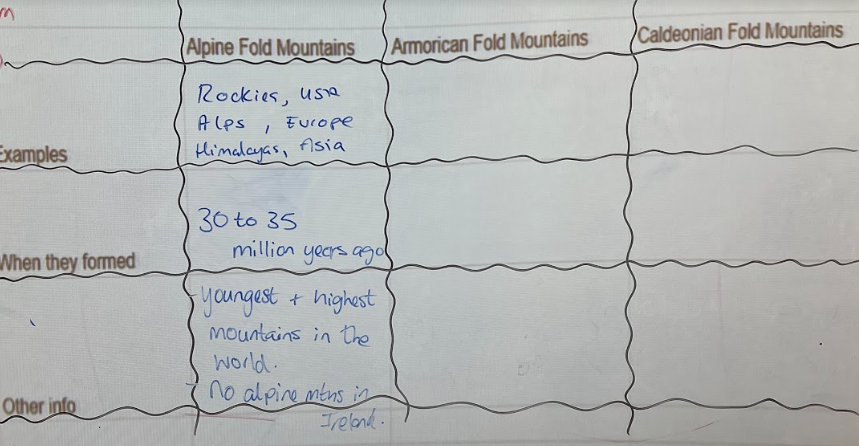 m
Alpine Fold Mountains
Armorican Fold Mountains
Caldeonian Fold Mountains
Examples
Rockies, USA
Alps, Europe
Himalayas, Asia
When they formed
30 to 35
million years ago
Other info
- youngest + highest
mountains in the
world.
- No alpine mtns in
Ireland.